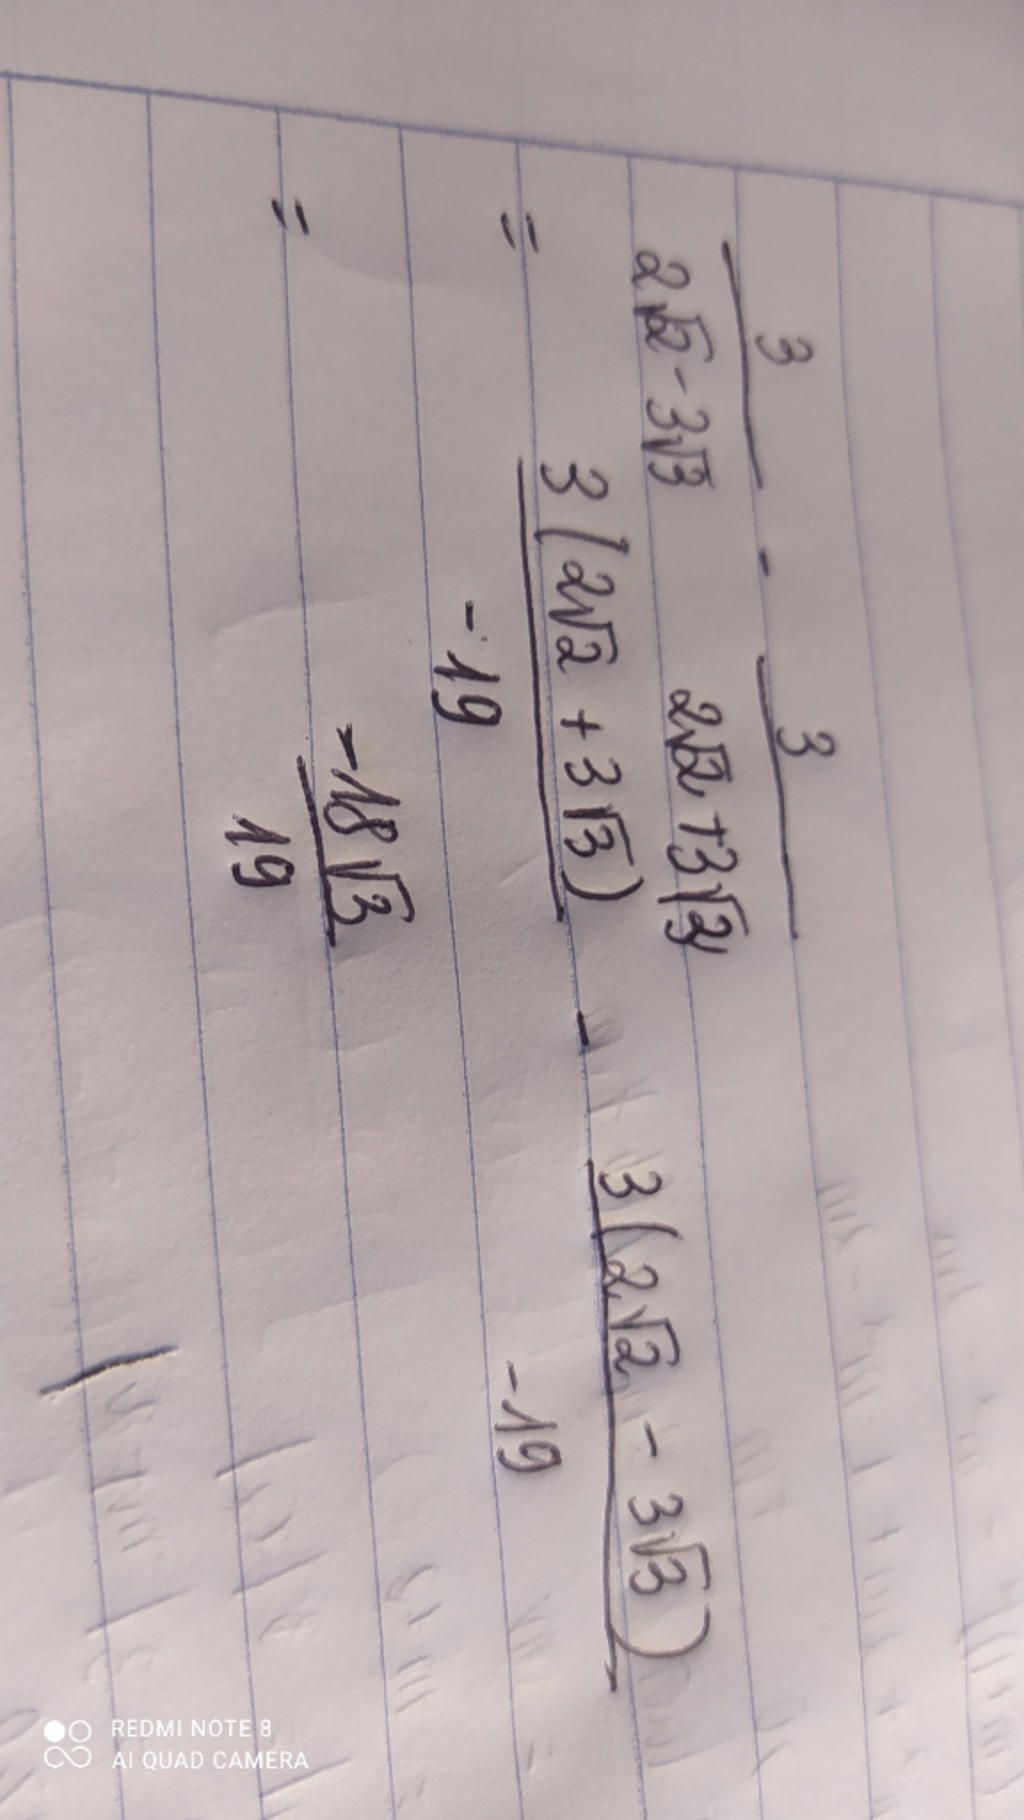 3/(2√2 - 3√3) - 3/(2√2 + 3√3)
= 3(2√2 + 3√3)/-19 - 3(2√2 - 3√3)/-19
= -18√3/19
REDMI NOTE 8
AI QUAD CAMERA